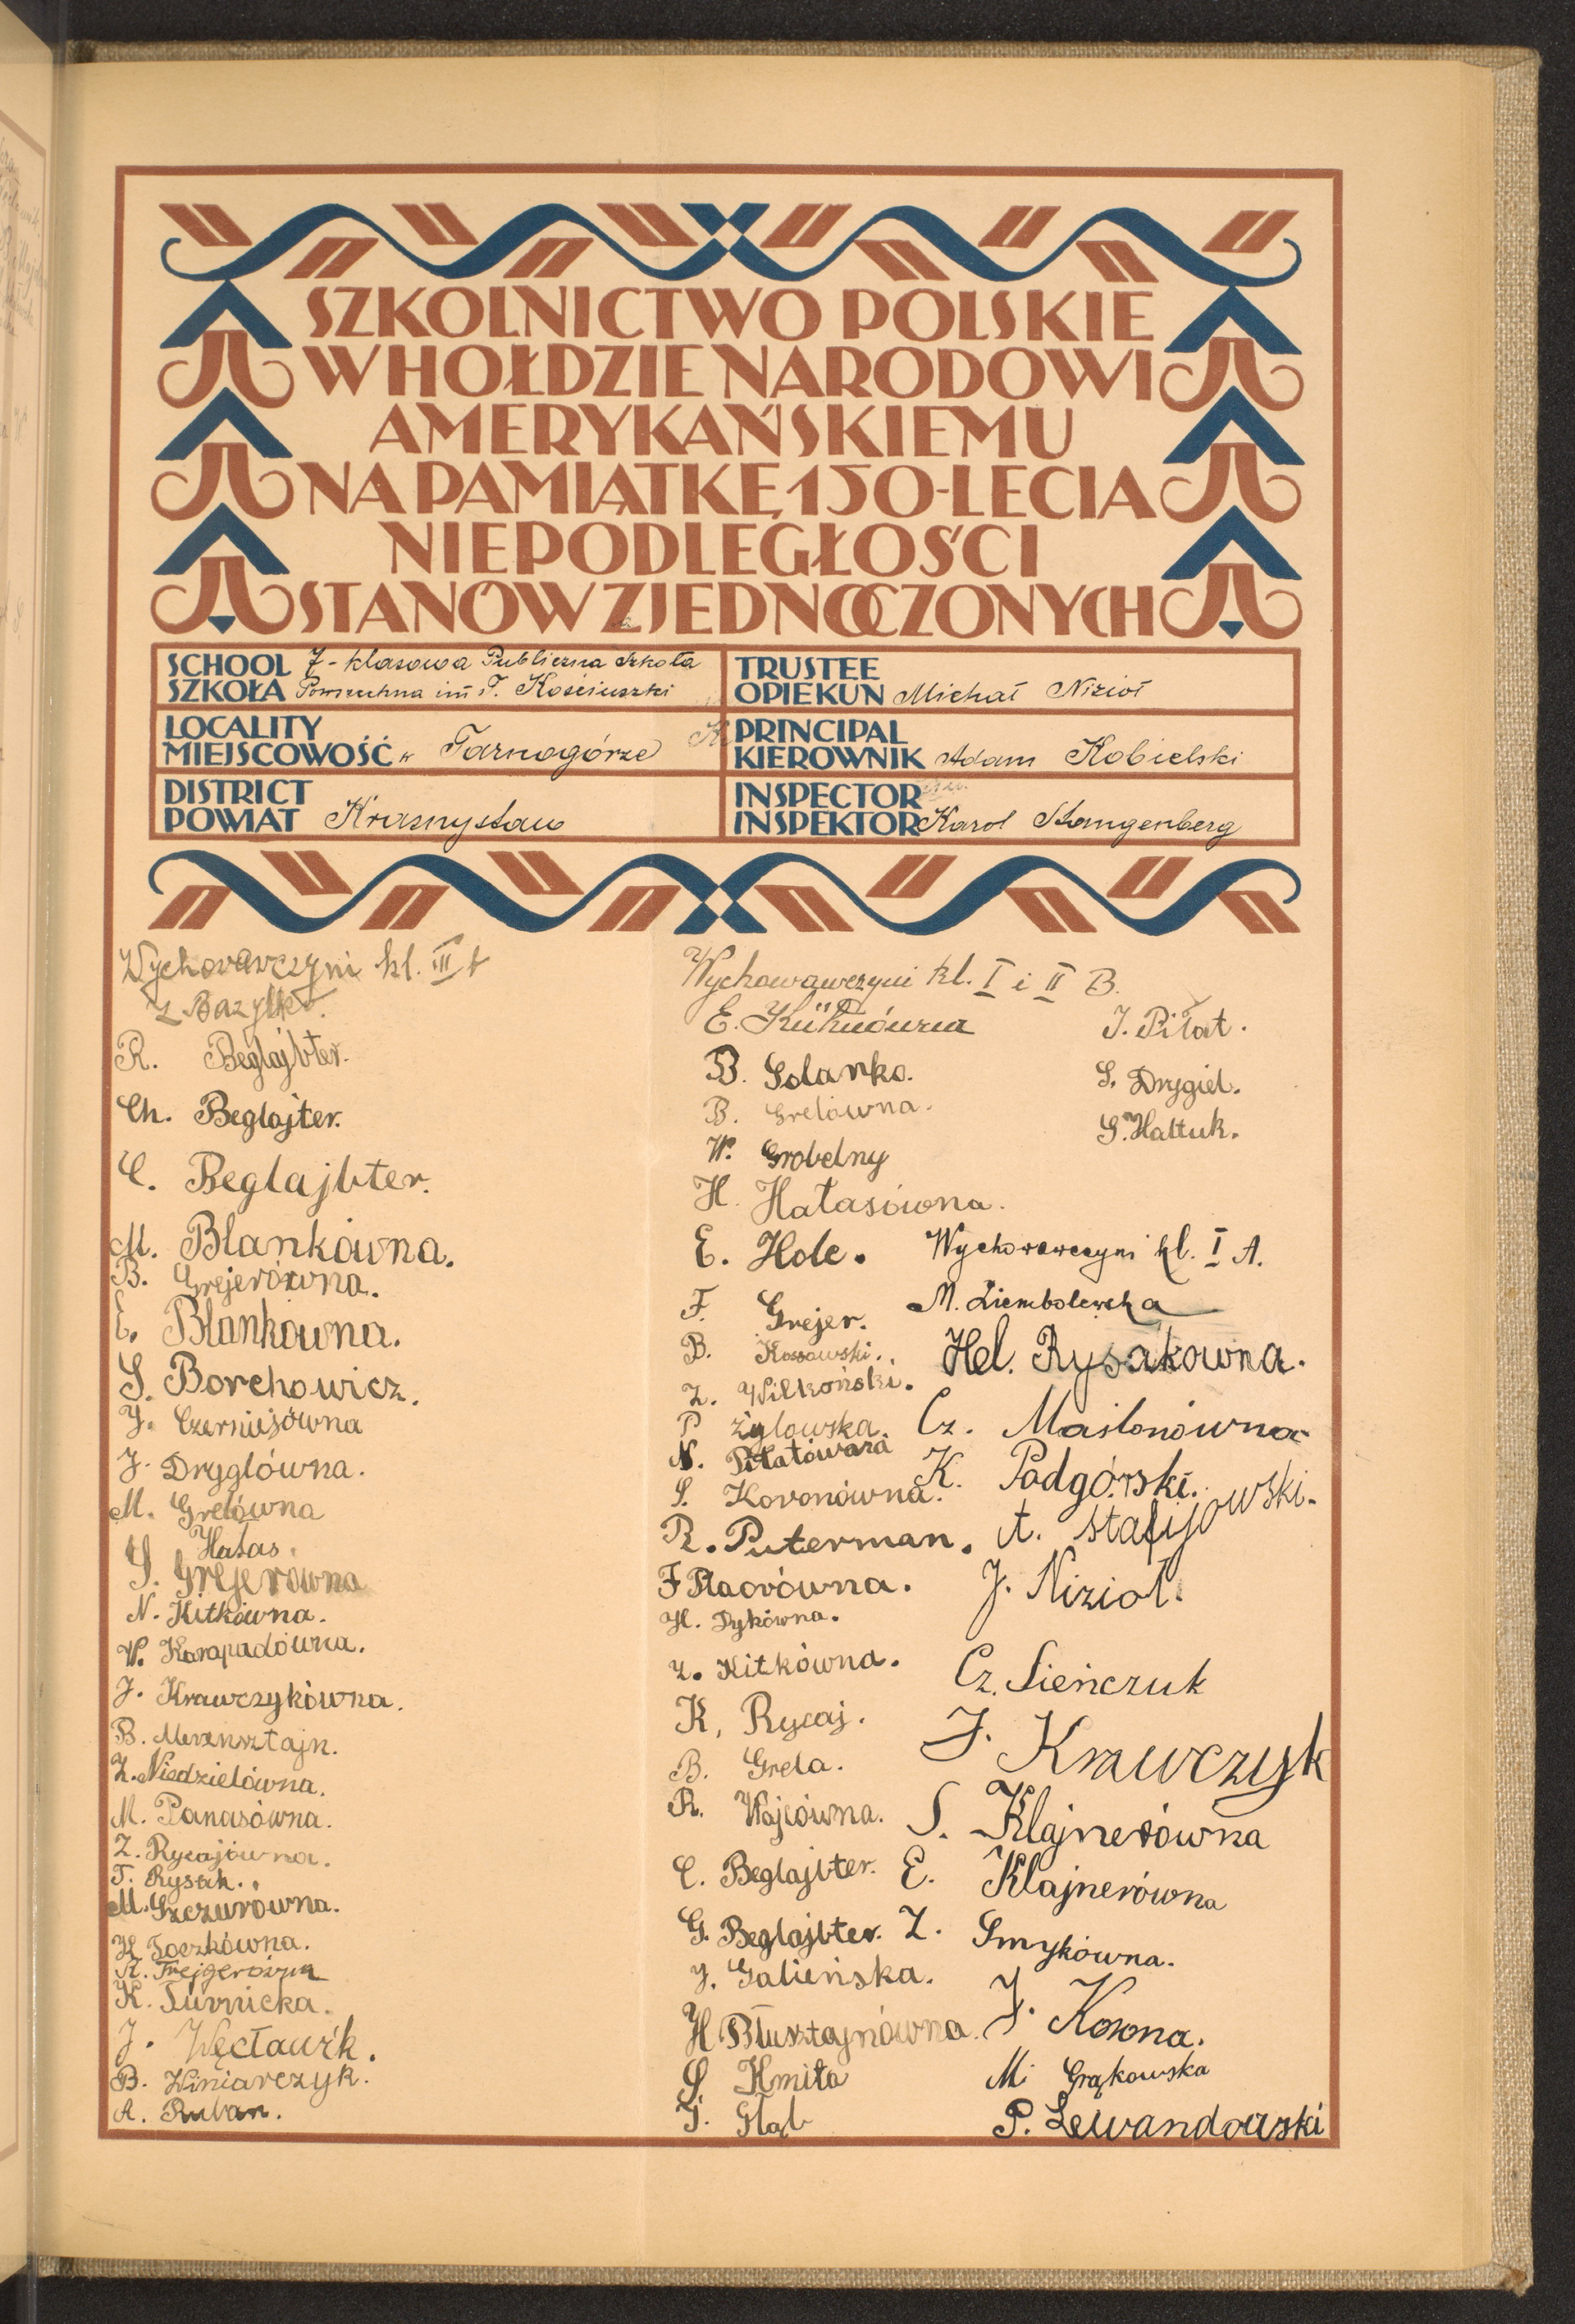 SZKOLNICTWO POLSKIE
W HOŁDZIE NARODOWI
AMERYKAŃSKIEMU
NA PAMIĄTKĘ 150-LECIA
NIEPODLEGŁOŚCI
STANÓW ZJEDNOCZONYCH
SCHOOL 7-klasowa Publiczna Szkoła
SZKOŁA Powszechna im. T. Kościuszki
TRUSTEE
OPIEKUN Michał Nizioł
LOCALITY
MIEJSCOWOŚĆ w Tarnogórze
PRINCIPAL
KIEROWNIK Adam Kobielski
DISTRICT
POWIAT Krasnystaw
INSPECTOR
INSPEKTOR Karol Stangenberg
Wychowawczyni kl. III b
R. Beglajbter.
Ch. Beglajter.
C. Beglajbter.
M. Blankówna.
B. Grejerówna.
E. Blankówna.
S. Borchowicz.
J. Czerniejówna
J. Dryglówna.
M. Grelówna
Hałas.
S. Grejerówna
N. Kitkówna.
W. Karapudówna.
J. Krawczykówna.
B. Merensztajn.
Z. Niedzielówna.
M. Panasówna.
Z. Rycajówna.
T. Rysak.
M. Szczurówna.
H. Toczkówna.
K. Turnicka.
J. Węcławik.
B. Winiarczyk.
A. Ruban.
Wychowawczyni kl. I i II B.
E. Kühnówna
B. Solanko.
B. Grelówna.
W. Grobelny
H. Hałasówna.
E. Hole.
F. Grejer.
B. Kossowski.
Z. Wilkoński.
P. Żyłowska.
N. Piłatówna
S. Koronówna.
R. Puterman.
F. Ptaorówna.
H. Dykówna.
Z. Kitkówna.
K. Rycaj.
B. Grela.
R. Wójcówna.
C. Beglajbter.
G. Beglajbter.
J. Galińska.
H. Błusztajnówna.
S. Kmita
J. Głąb
J. Piłat.
S. Drygiel.
S. Hałtuk.
Wychowawczyni kl. I A.
M. Ziembolewska
Hel. Rysakówna.
Cz. Maślonówna
K. Podgórski.
A. Stafijowski.
J. Nizioł.
Cz. Sieńczuk
J. Krawczyk
S. Klajnerówna
E. Klajnerówna
Z. Smykówna.
J. Kosna.
M. Grąkowska
P. Lewandowski